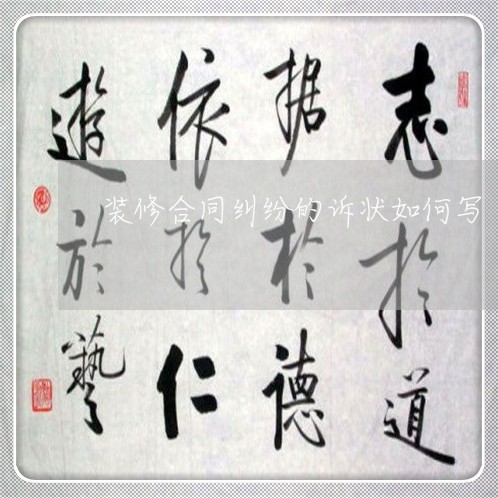 志於道
据於德
依於仁
遊於藝
装修合同纠纷的诉状如何写